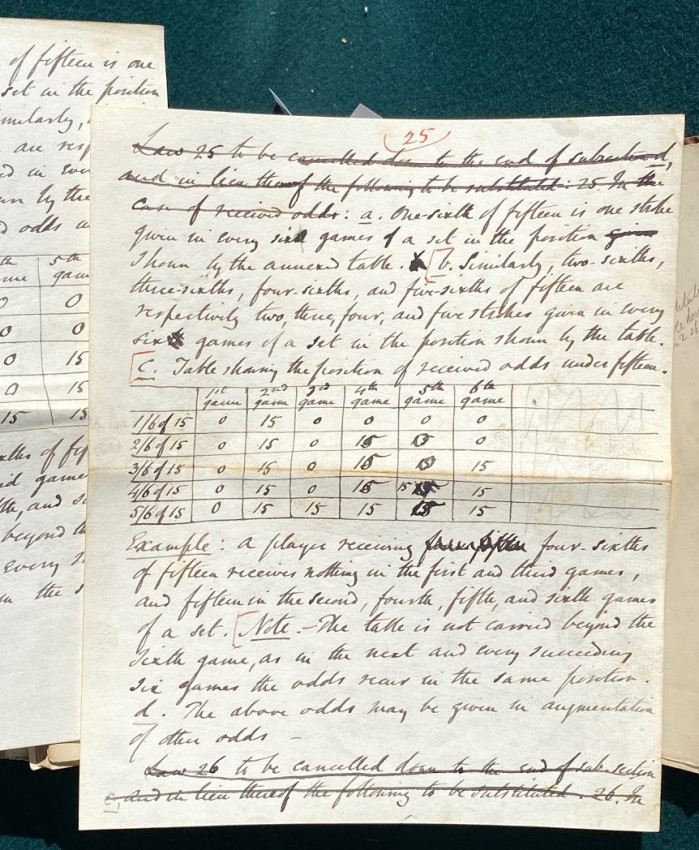 of fifteen is one
set in the position
similarly,
are resp
ed in eve
on by the
odds
5th
game
0 0
0 0
0 15
0 15
15 15
of fif
game
and s
beyond th
every s
in the s
25
Law 25 to be cancelled down to the end of subsection d,
and in lieu thereof the following to be substituted: 25 In the
case of received odds: a. One-sixth of fifteen is one stroke
given in every six games of a set in the position
shown by the annexed table. b. Similarly, two-sixths,
three-sixths, four-sixths, and five-sixths of fifteen are
respectively two, three, four, and five strokes given in every
six games of a set in the position shown by the table.
C. Table showing the position of received odds under fifteen.
1st game 2nd game 3rd game 4th game 5th game 6th game
1/6 of 15 0 15 0 0 0 0
2/6 of 15 0 15 0 15 0 0
3/6 of 15 0 15 0 15 0 15
4/6 of 15 0 15 0 15 15 15
5/6 of 15 0 15 15 15 15 15
Example: A player receiving four-sixths
of fifteen receives nothing in the first and third games,
and fifteen in the second, fourth, fifth, and sixth games
of a set. Note.- The table is not carried beyond the
sixth game, as in the next and every succeeding
six games the odds recur in the same position.
d. The above odds may be given in augmentation
of other odds -
Law 26 to be cancelled down to the end of sub-section
c, and in lieu thereof the following to be substituted. 26. In